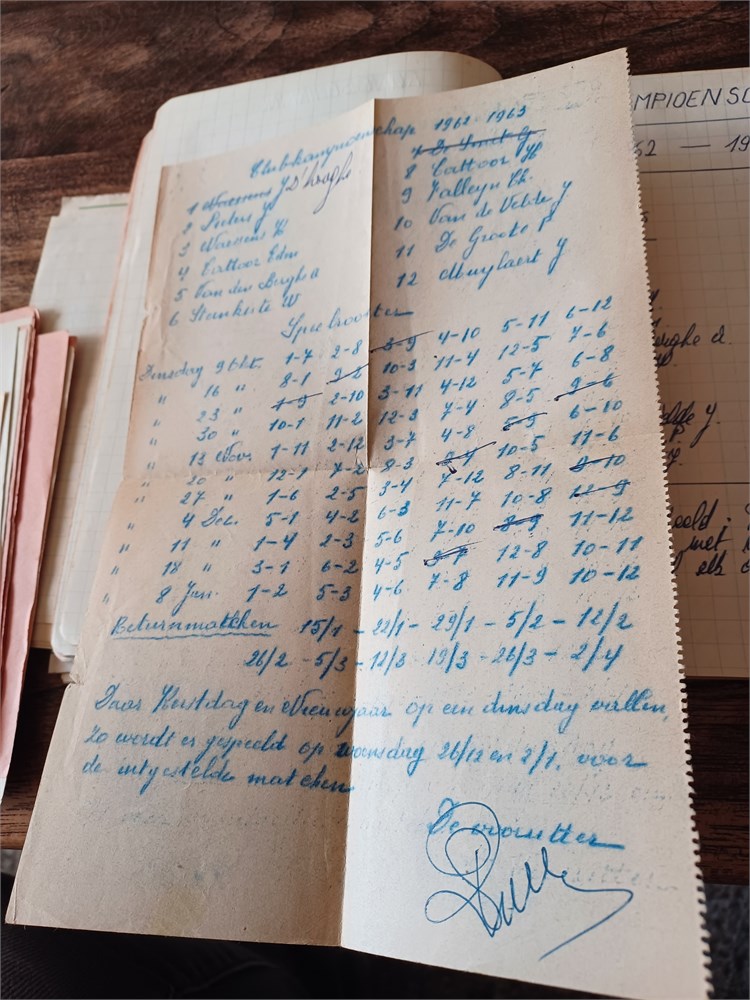 Clubkampioenschap 1962-1963
1 Waesens J D'hooghe
2 Pieters J
3 Waesens H
4 Cattoor Edm
5 Van den Berghe A
6 Stankerte W
7 De Smet G
8 Cattoor H
9 Falleyn Ch.
10 Van de Velde J
11 De Groote P
12 Muylaert J
Speelrooster
Dinsdag 9 Okt. 1-7 2-8 3-9 4-10 5-11 6-12
" 16 " 8-1 9-2 10-3 11-4 12-5 7-6
" 23 " 1-9 2-10 3-11 4-12 5-7 6-8
" 30 " 10-1 11-2 12-3 7-4 8-5 9-6
" 13 Nov. 1-11 2-12 3-7 4-8 5-9 6-10
" 20 " 12-1 7-2 8-3 9-4 10-5 11-6
" 27 " 1-6 2-5 3-4 7-12 8-11 9-10
" 4 Dec. 5-1 4-2 6-3 11-7 10-8 12-9
" 11 " 1-4 2-3 5-6 7-10 8-9 11-12
" 18 " 3-1 6-2 4-5 9-7 12-8 10-11
" 8 Jan. 1-2 5-3 4-6 7-8 11-9 10-12
Returnmatchen 15/1 - 22/1 - 29/1 - 5/2 - 12/2
26/2 - 5/3 - 12/3 19/3 - 26/3 - 2/4
Daar Kerstdag en Nieuwjaar op een dinsdag vallen,
Zo wordt er gespeeld op woensdag 26/12 en 2/1, voor
de uitgestelde matchen
De voorzitter
MPIOENSC
62 — 19
velde J.
eeld :
met
elk